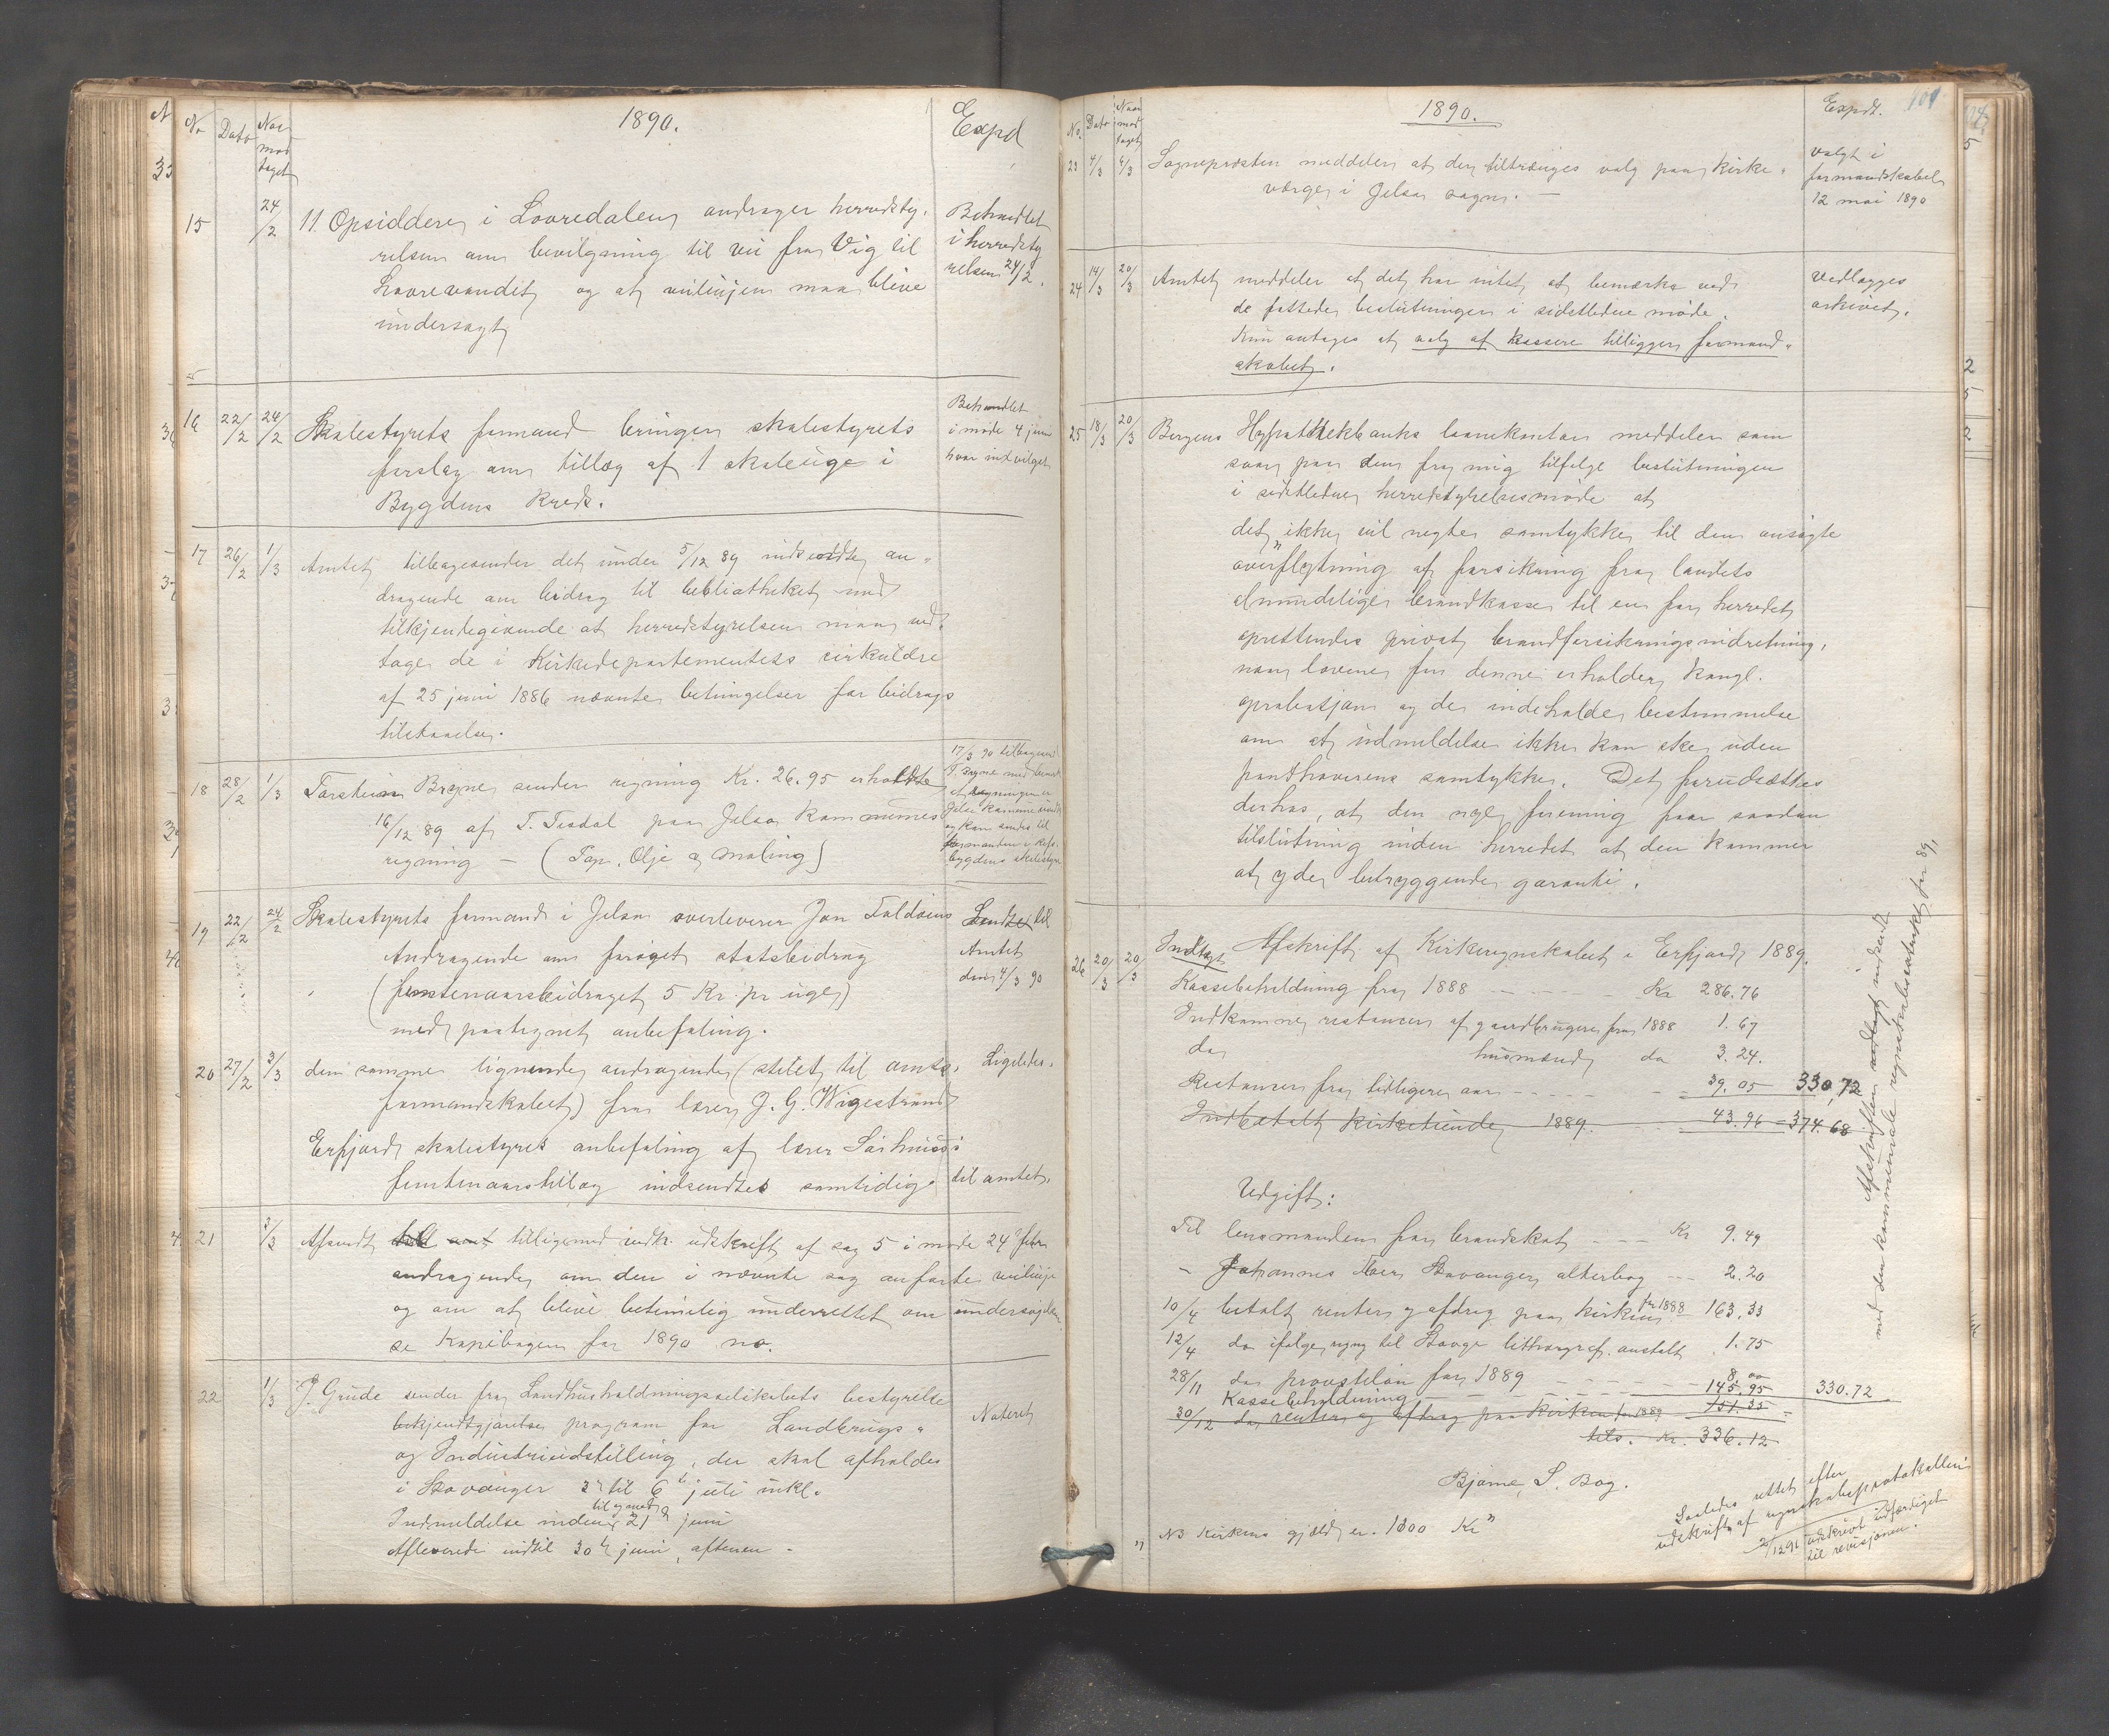 No Dato Naar modtaget 1890. Expd
15 24/2 11 Opsiddere i Lovredalen andrager herredsty-
relsen om bevilgning til vei fra Vig til
Lovrevandet og at veilinjen maa blive
undersøgt
Behandlet
i herredsty
relsen 24/2.
16 22/2 24/2 Skolestyrets formand bringer skolestyrets
forslag om tillæg af 1 skoleuge i
Bygdens Kreds.
Behandlet
i møde 4 juni
hvor indvilget
17 26/2 1/3 Amtet tilbagesender det under 5/12 89 indsendte an-
dragende om bidrag til bibliotheket med
tilkjendegivende at herredstyrelsen maa ved-
tage de i Kirkedepartementets cirkulære
af 25 juni 1886 nævnte betingelser for bidrags
tilstaaelse.
18 28/2 1/3 Torstein Bryne sender regning Kr. 26.95 erholdte
16/12 89 af T. Tesdal paa Jelsa Kommunes
regning — (Tap. Olje og Maling)
17/3 90 tilbagesendt
T. Bryne med bemærk
at regningen er
Jelse Kommune
og kan sendes til
formanden i
bygdens skolestyre
19 22/2 24/2 Skolestyrets formand i Jelsa overleverer Jon Foldøens
Andragende om forøget statsbidrag
(femtenaarsbidraget 5 Kr. pr uge)
med paategnet anbefaling.
Sendt til
Amtet
den 4/3 90
20 27/2 3/3 den samme lignende andragende (stilet til amts-
formandskabet) fra lærer J. G. Wigestrand
Ligeledes.
Erfjord skolestyres anbefaling af lærer Sørhus's
femtenaarstillæg indsendtes samtidig til amtet.
21 3/3 Afsendt till amt tilligemed indk. udskrift af sag 5 i møde 24 febr
andragende om den i nævnte sag anførte veilinje
og om at blive betimelig underrettet om undersøgelsen
se Kopibogen for 1890 no.
22 1/3 J. Grude sender fra Landhusholdningsselskabets bestyrelse
bekjendtgjørelse program for Landbrugs-
og Industriudstilling, der skal afholdes
i Stavanger 2 til 6 juli inkl.
til og med
Indmeldelse inden 21 juni
Afleverede indtil 30 juni, aftenen -
Noteret
No. Dato Naar modtaget 1890. Expdt. 101
23 4/3 6/3 Sogneprésten meddeler at der tiltrænges valg paa Kirke-
værge i Jelsa sogn. —
valgt i
formandskabet
12 mai 1890
24 14/3 20/3 Amtet meddeler at det har intet at bemærke ved
de fattede beslutninger i sidstledne møde.
Kun antages at valg af kassere tilligger formand-
skabet.
Vedlægges
arkivet.
25 18/3 20/3 Bergens Hypothekbanks laanekontor meddeler som
svar paa den fra mig tilfølge beslutningen
i sidstledne herredstyrelsesmøde at
det ikke vil negte samtykke til den ansøgte
overflytning af forsikring fra landets
almindelige brandkasse til en for herredet
oprettendes privat brandforsikringsindretning,
naar lovene for denne erholder Kongl.
aprobasjon og de indeholder bestemmelse
om at udmeldelse ikke kan ske uden
panthaverens samtykke. Det forudsættes
derhos, at den nye forening faar saadan
tilslutning inden herredet at den kommer
at yde betryggende garanti.
26 20/3 20/3 Indtægt Afskrift af Kirkeregnskabet i Erfjord 1889.
Kassebeholdning fra 1888 - - - - Kr 286.76
Indkomne restancer af gaardbrugere fra 1888 1.67
do husmænd do 3.24.
Restancer fra tidligere aar - - - - - 39.05 330,72
Indbetalt Kirketiende 1889. 43.96 - 374.68
Udgift:
Til lensmanden for brandskat - - - Kr 9.49
- Johannes Floer Stavanger alterbog - - - 2.20
10/4 betalt renter og afdrag paa kirken for 1888 - 163.33
12/4 do ifølge regng til Stavgr litthograf. anstalt 1.75
28/11 do provsteløn for 1889 - - - - - 8.00
Kassebeholdning - - - - 145.95 330.72
30/12 do renter og afdrag paa Kirken for 1889 151.35
tils. Kr. 336.12
Bjarne S. Bog.
NB Kirkens gjæld er 1800 Kr
Saaledes rettet efter
udskrift af regnskabsprotokollen
2/12 91 udskrivt udfærdiget
til revisjonen.
Afskriften vedlagt indsendt
med den kommunale regnskabsextrakt for 89,